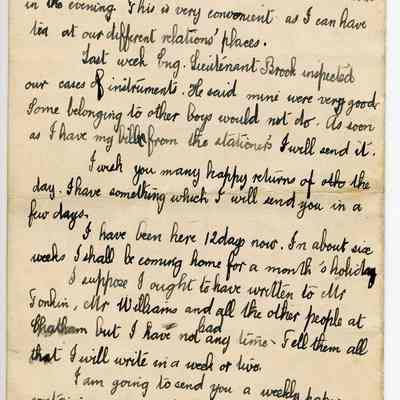 in the evening. This is very convenient as I can have
tea at our different relations' places.
Last week Eng. Lieutenant Brook inspected
our cases of instruments. He said mine were very good
Some belonging to other boys would not do. As soon
as I have my bill from the stationer's I will send it.
I wish you many happy returns of the
day. I have something which I will send you in a
few days.
I have been here 12 days now. In about six
weeks I shall be coming home for a month's holiday
I suppose I ought to have written to Mr
Tonkin, Mr Williams and all the other people at
Chatham but I have not had any time. Tell them all
that I will write in a week or two.
I am going to send you a weekly